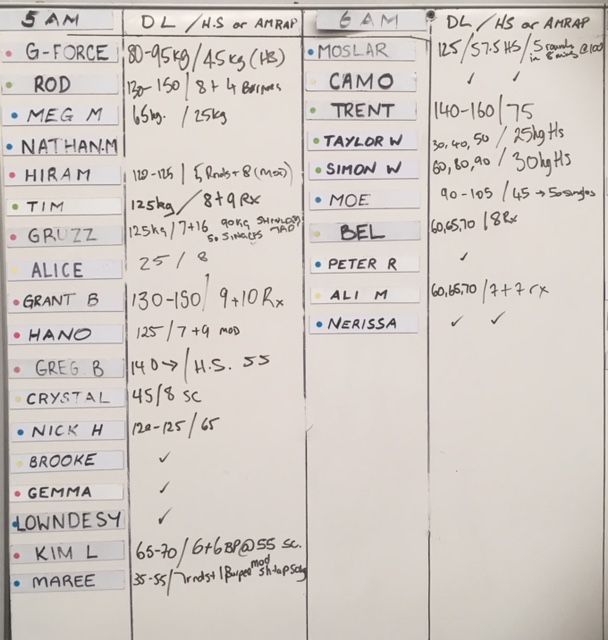 5 AM DL / H.S OR AMRAP
G-FORCE 80-95kg / 45kg (HS)
ROD 130-150 / 8 + 4 Burpees
MEG M 65kg. / 25kg
NATHAN.M
HIRAM 120-125 / 5 Rnds + 8 (MOD)
TIM 125kg / 8+9 Rx
GRUZZ 125kg / 7+16 90KG
50 SINGLES
ALICE 25 / 8
GRANT B 130-150 / 9+10 Rx
HANO 125 / 7+9 MOD
GREG. B 140 → / H.S. 55
CRYSTAL 45/8 SC
NICK H 120-125 / 65
BROOKE ✓
GEMMA ✓
LOWNDESY ✓
KIM L 65-70 / 6+6BP@55 SC.
MAREE 35-55 / 7rndst 1 Burpee mod
6 AM DL / HS OR AMRAP
MOSLAR 125 / 57.5 HS / 5 rounds
in 8 mins @100
CAMO ✓ ✓
TRENT 140-160 / 75
TAYLOR W 30, 40, 50 / 25kg Hs
SIMON W 60, 80, 90 / 30kg Hs
MOE 90-105 / 45 → 50 singles
BEL 60,65,70 / 8 Rx
PETER R ✓
ALI M 60,65,70 / 7+7 rx
NERISSA ✓ ✓